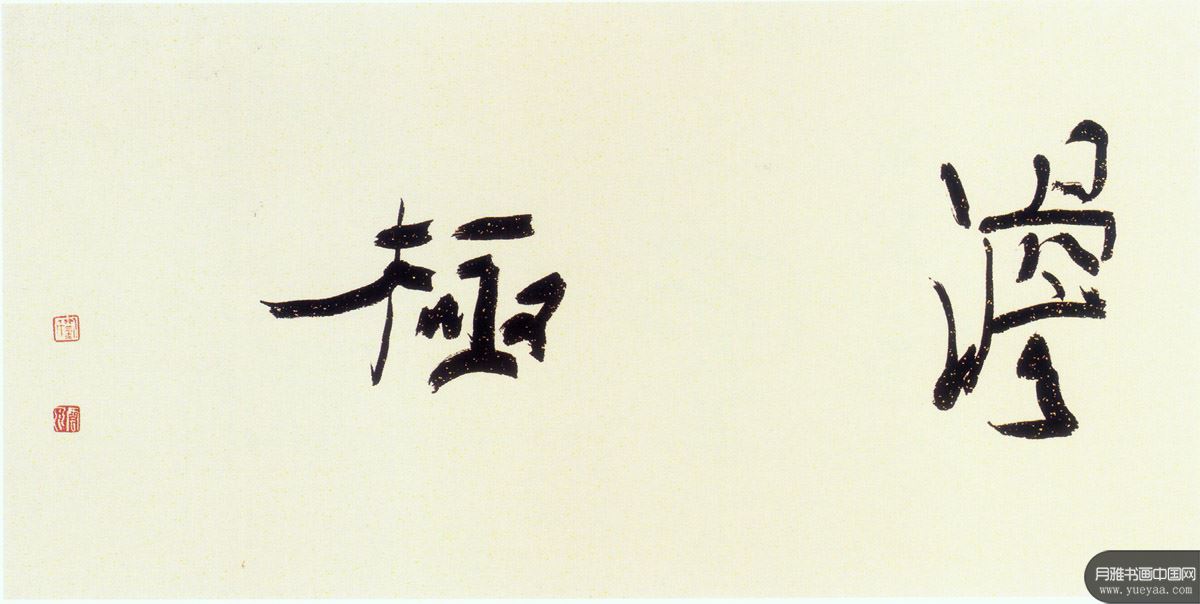 漫極
月雅书画中国网
www.yueyaa.com